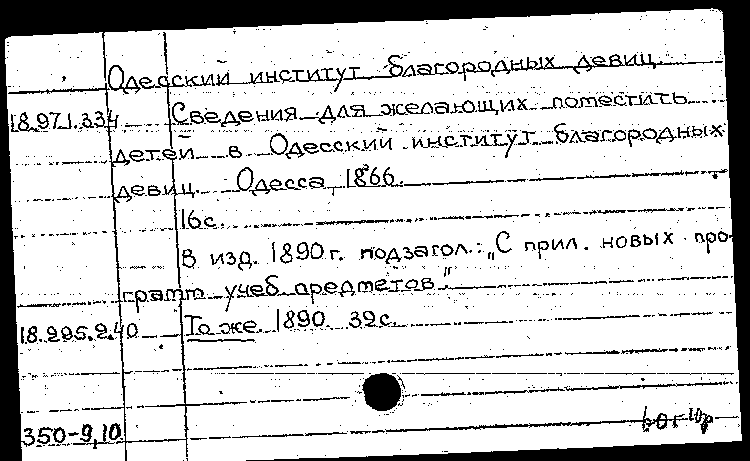 Одесский институт благородных девиц.
18.971.334 Сведения для желающих поместить
детей в Одесский институт благородных
девиц. Одесса, 1866.
16с.
В изд. 1890 г. подзагол.: „С прил. новых про-
грамм учеб. предметов".
18.295.2.40 То же. 1890. 32с.
350-9,10